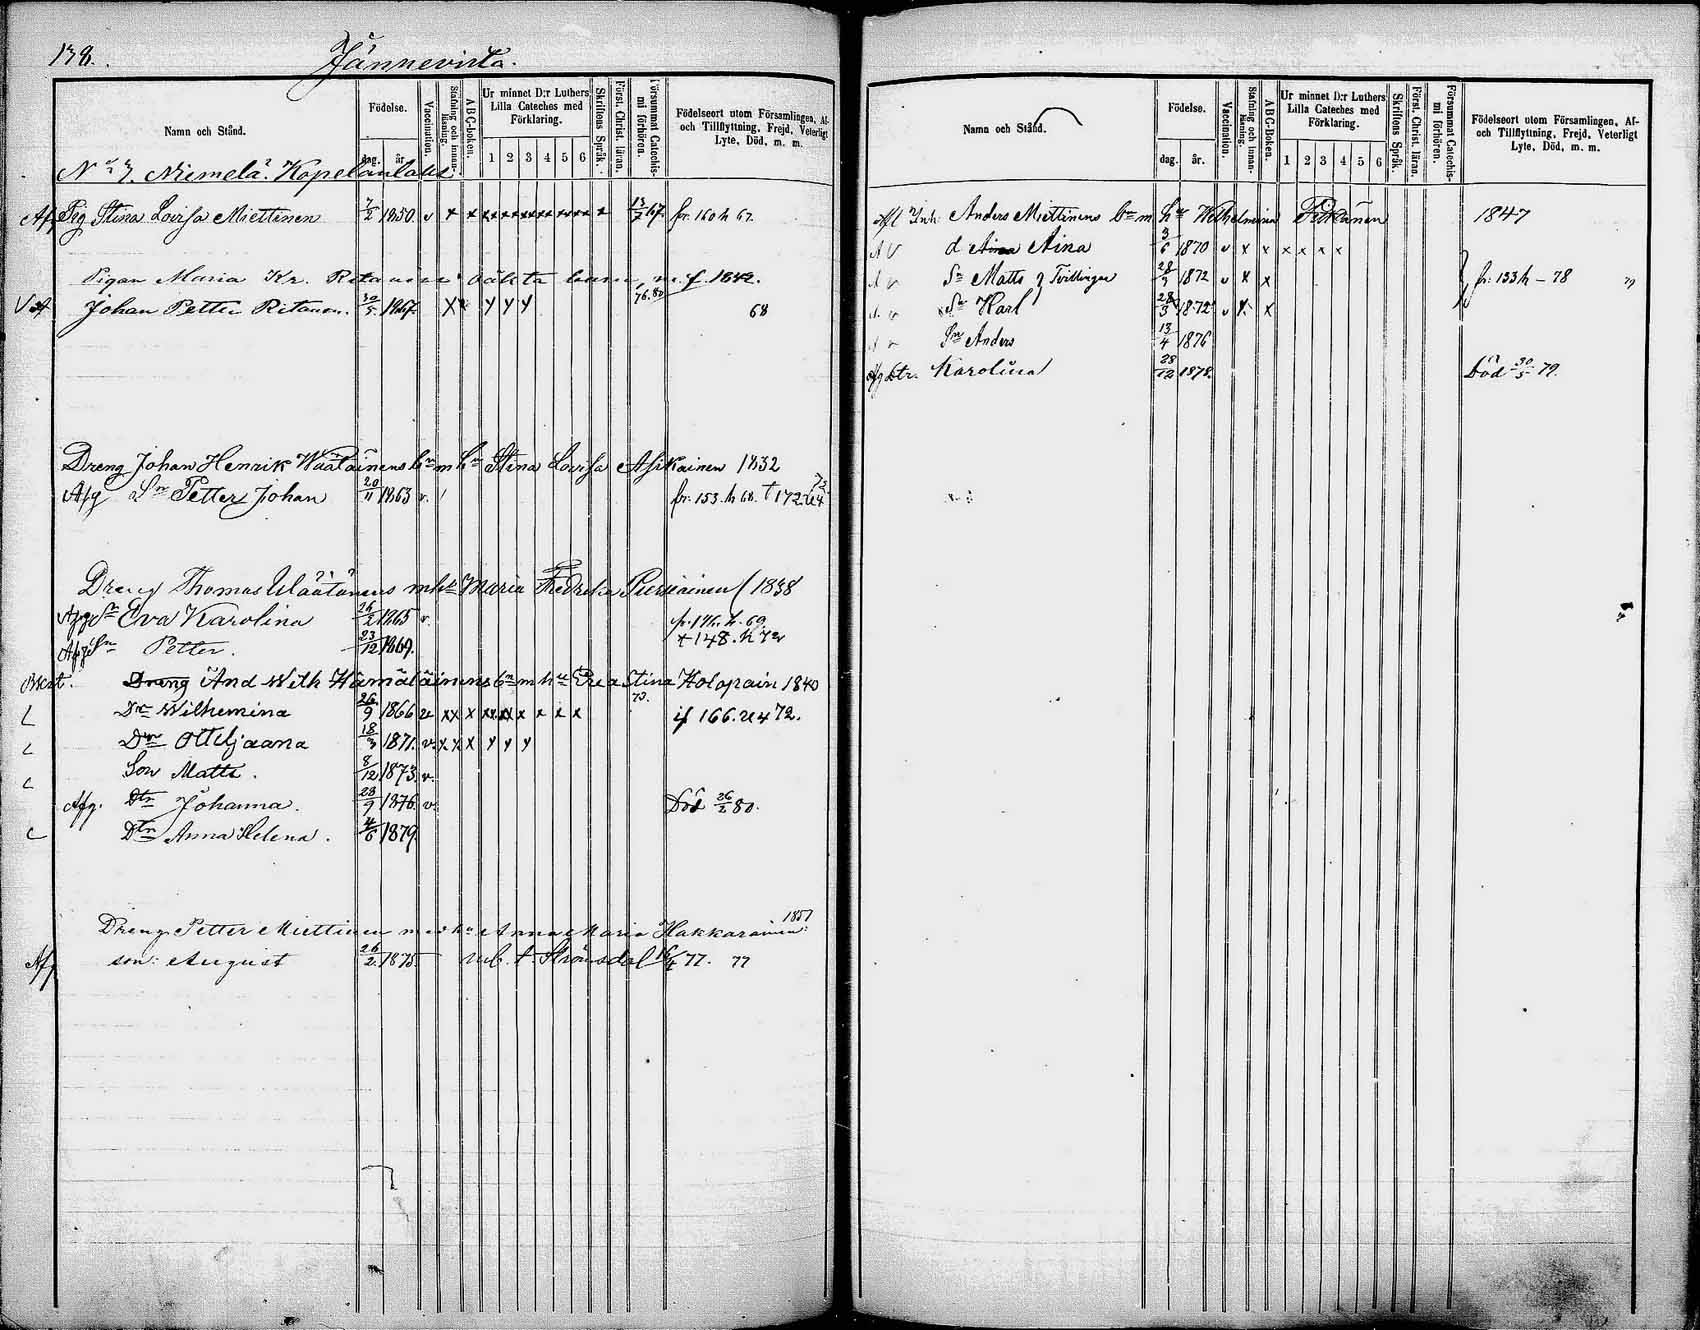 138.
Jännevirta.
Namn och Stånd.
Födelse.
dag. år.
Vaccination.
Stafning och innanläsning.
A B C-boken.
Ur minnet D:r Luthers Lilla Cateches med Förklaring.
1 2 3 4 5 6
Skriftens Språk.
Först. Christ. läran.
Försummat Catechismi förhören.
Födelseort utom Församlingen, Af- och Tillflyttning, Frejd, Veterligt Lyte, Död, m. m.
Niemelä.
Afg Pig Stina Lovisa Miettinen 7/2 1850. v x x x x x x x x x x x x x 13/2 67. fr. 160 h 67.
Pigan Maria Kr. Ritanens oäkta barn, f. 1842.
Johan Petter Ritanen. 30/5 1867. x x y y y 76.80 68
Dreng Johan Henrik Väätäinens bn m hu Stina Lovisa Asikainen 1832
Afg Sn Petter Johan 20/11 1863 v. fr. 153. h 68.
Dreng Thomas Väätänens m hu Maria Fredrika 1838
Afg Eva Karolina 26/2 1865 v.
Afg Sn Petter. 23/12 1869. 148. h 72
Dreng And Wilh Hämäläinens bn m hu Eva Stina Kolopain 1840
Dr Wilhemina 26/9 1866 v x x x x x x x x x 73. if 166. 72.
Dr Ottiljaana 18/3 1871. v. x x x y y y
Son Matts. 8/12 1873 v.
Afg. Dtr Johanna. 28/9 1876 v. Död 26/2 80.
Dtr Anna Helena. 4/6 1879
Dreng Petter Miettinen med hu Anna Maria Hakkarainen 1851
Afg son: August 26/2 1875 mb. t. Strömsdal 16/4 77. 77
Namn och Stånd.
Födelse.
dag. år.
Vaccination.
Stafning och innanläsning.
A B C-boken.
Ur minnet D:r Luthers Lilla Cateches med Förklaring.
1 2 3 4 5 6
Skriftens Språk.
Först. Christ. läran.
Försummat Catechismi förhören.
Födelseort utom Församlingen, Af- och Tillflyttning, Frejd, Veterligt Lyte, Död, m. m.
Inh: Anders Miettinens bn m hu Wilhelmina Pitkänen 1847
d Aina 3/6 1870 v x x x x x x
Sn Matts Tvillingar 28/3 1872 v x x fr. 153 h - 78
Sn Karl 28/3 1872 v x x
Sn Anders 13/4 1876
Afg Dtr. Karolina 28/12 1878. Död 30/5 79.